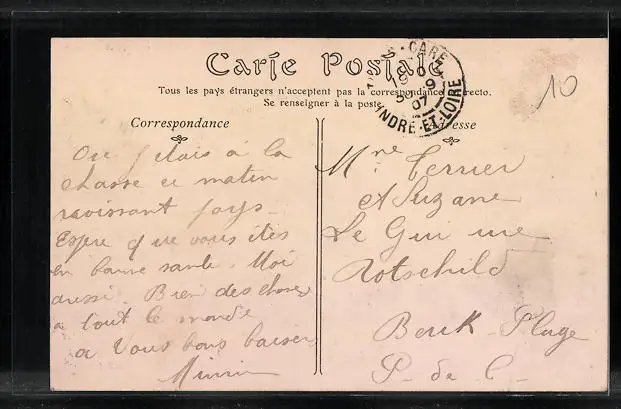 Carte Postale
Tous les pays étrangers n'acceptent pas la correspondance recto.
Se renseigner à la poste.
Correspondance
Adresse
GARE
30 9
07
INDRE-ET-LOIRE
10
à la
chasse ce matin
ravissant pays.
Espère que vous êtes
en bonne santé. Moi
aussi. Bien des choses
à tout le monde
a vous bons baisers
Mimi
Mme Terrier
et Suzane
Rotschild
Berck-Plage
P. de C.